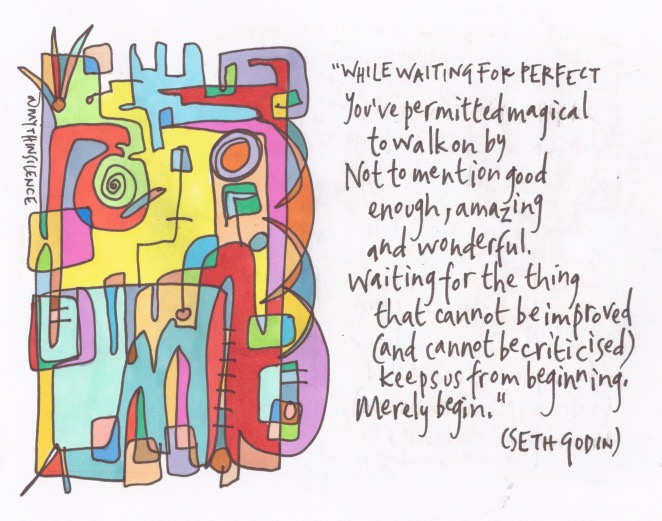 @MYTHINSILENCE
"WHILE WAITING FOR PERFECT
You've permitted magical
to walk on by
Not to mention good
enough, amazing
and wonderful.
Waiting for the thing
that cannot be improved
(and cannot be criticised)
keeps us from beginning.
Merely begin."
(SETH GODIN)